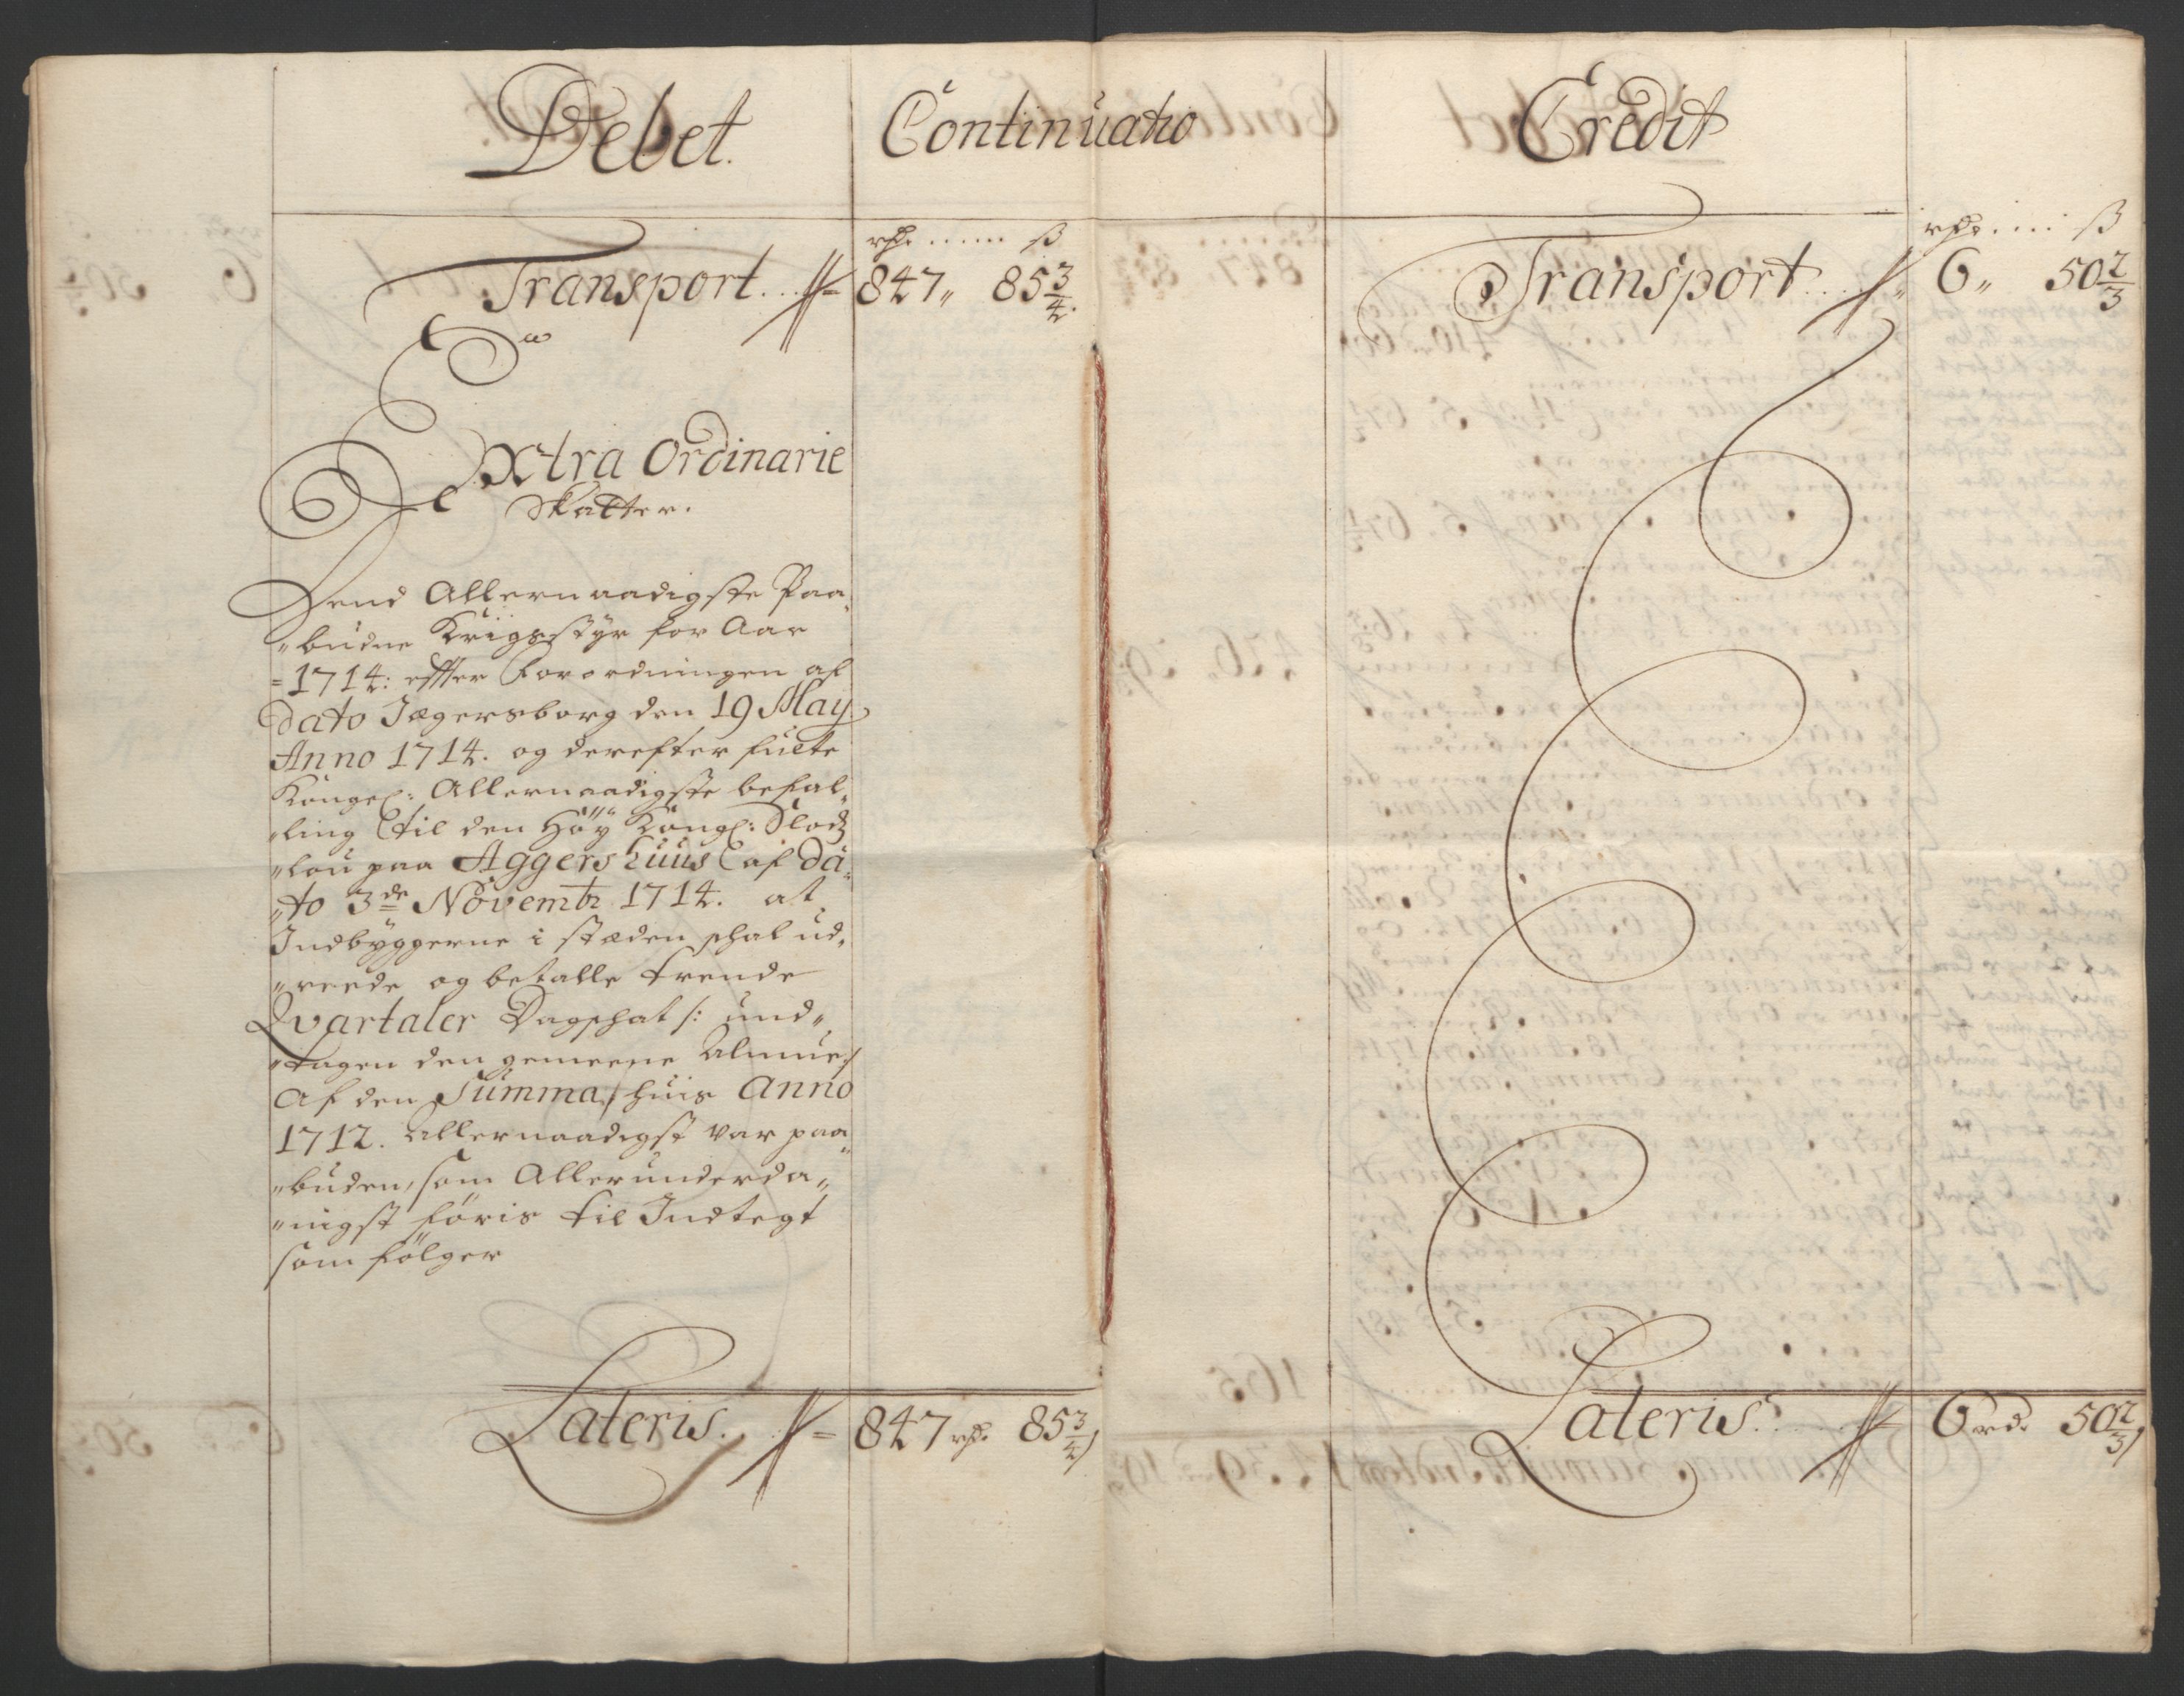 Debet. Continuatio Credit
rdr ..... ß
Transport. . . 847 „ 85 3/4.
Extra Ordinarie
Skatter.
Dend Allernaadigste Paa„
„budne Krigsstyr for Aar
=1714: effter Forordningen af
Dato Jægersborg den 19 May
Anno 1714. og derefter fulte
Kongel: Allernaadigste befal„
„ling til den Høy Kongl: Slodz
„lou paa Aggershuus af Da„
„to 3de Novembr 1714. at
Indbyggerne i stæden schal ud„
„reede og betalle trende
Qvartaler Dagschat /: und„
„tagen den gemeene Almue:/
Af den Summa, huis Anno
1712. Allernaadigst var paa„
„buden, som Allerunderda„
„nigst føris til Indtegt
som følger
Lateris. . . = 847 rdr 85 3/4
rdr .... ß
Transport . . . 6 „ 50 2/3
Lateris. . . 6 rd. 50 2/3